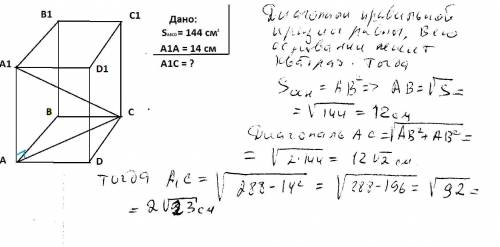 B1
C1
A1
D1
B
C
A
D
Дано:
Sавсд= 144 см²
A1A = 14 см
A1C = ?
Диагонали правильной
призмы равны, В его
основании лежит
квадрат. Тогда
Sосн = AB² => AB = √S =
= √144 = 12 см
Диагональ AC = √AB²+AB² =
= √2·144 = 12√2 см
Тогда A₁C = √288-14² = √288-196 = √92 =
= 2√23 см